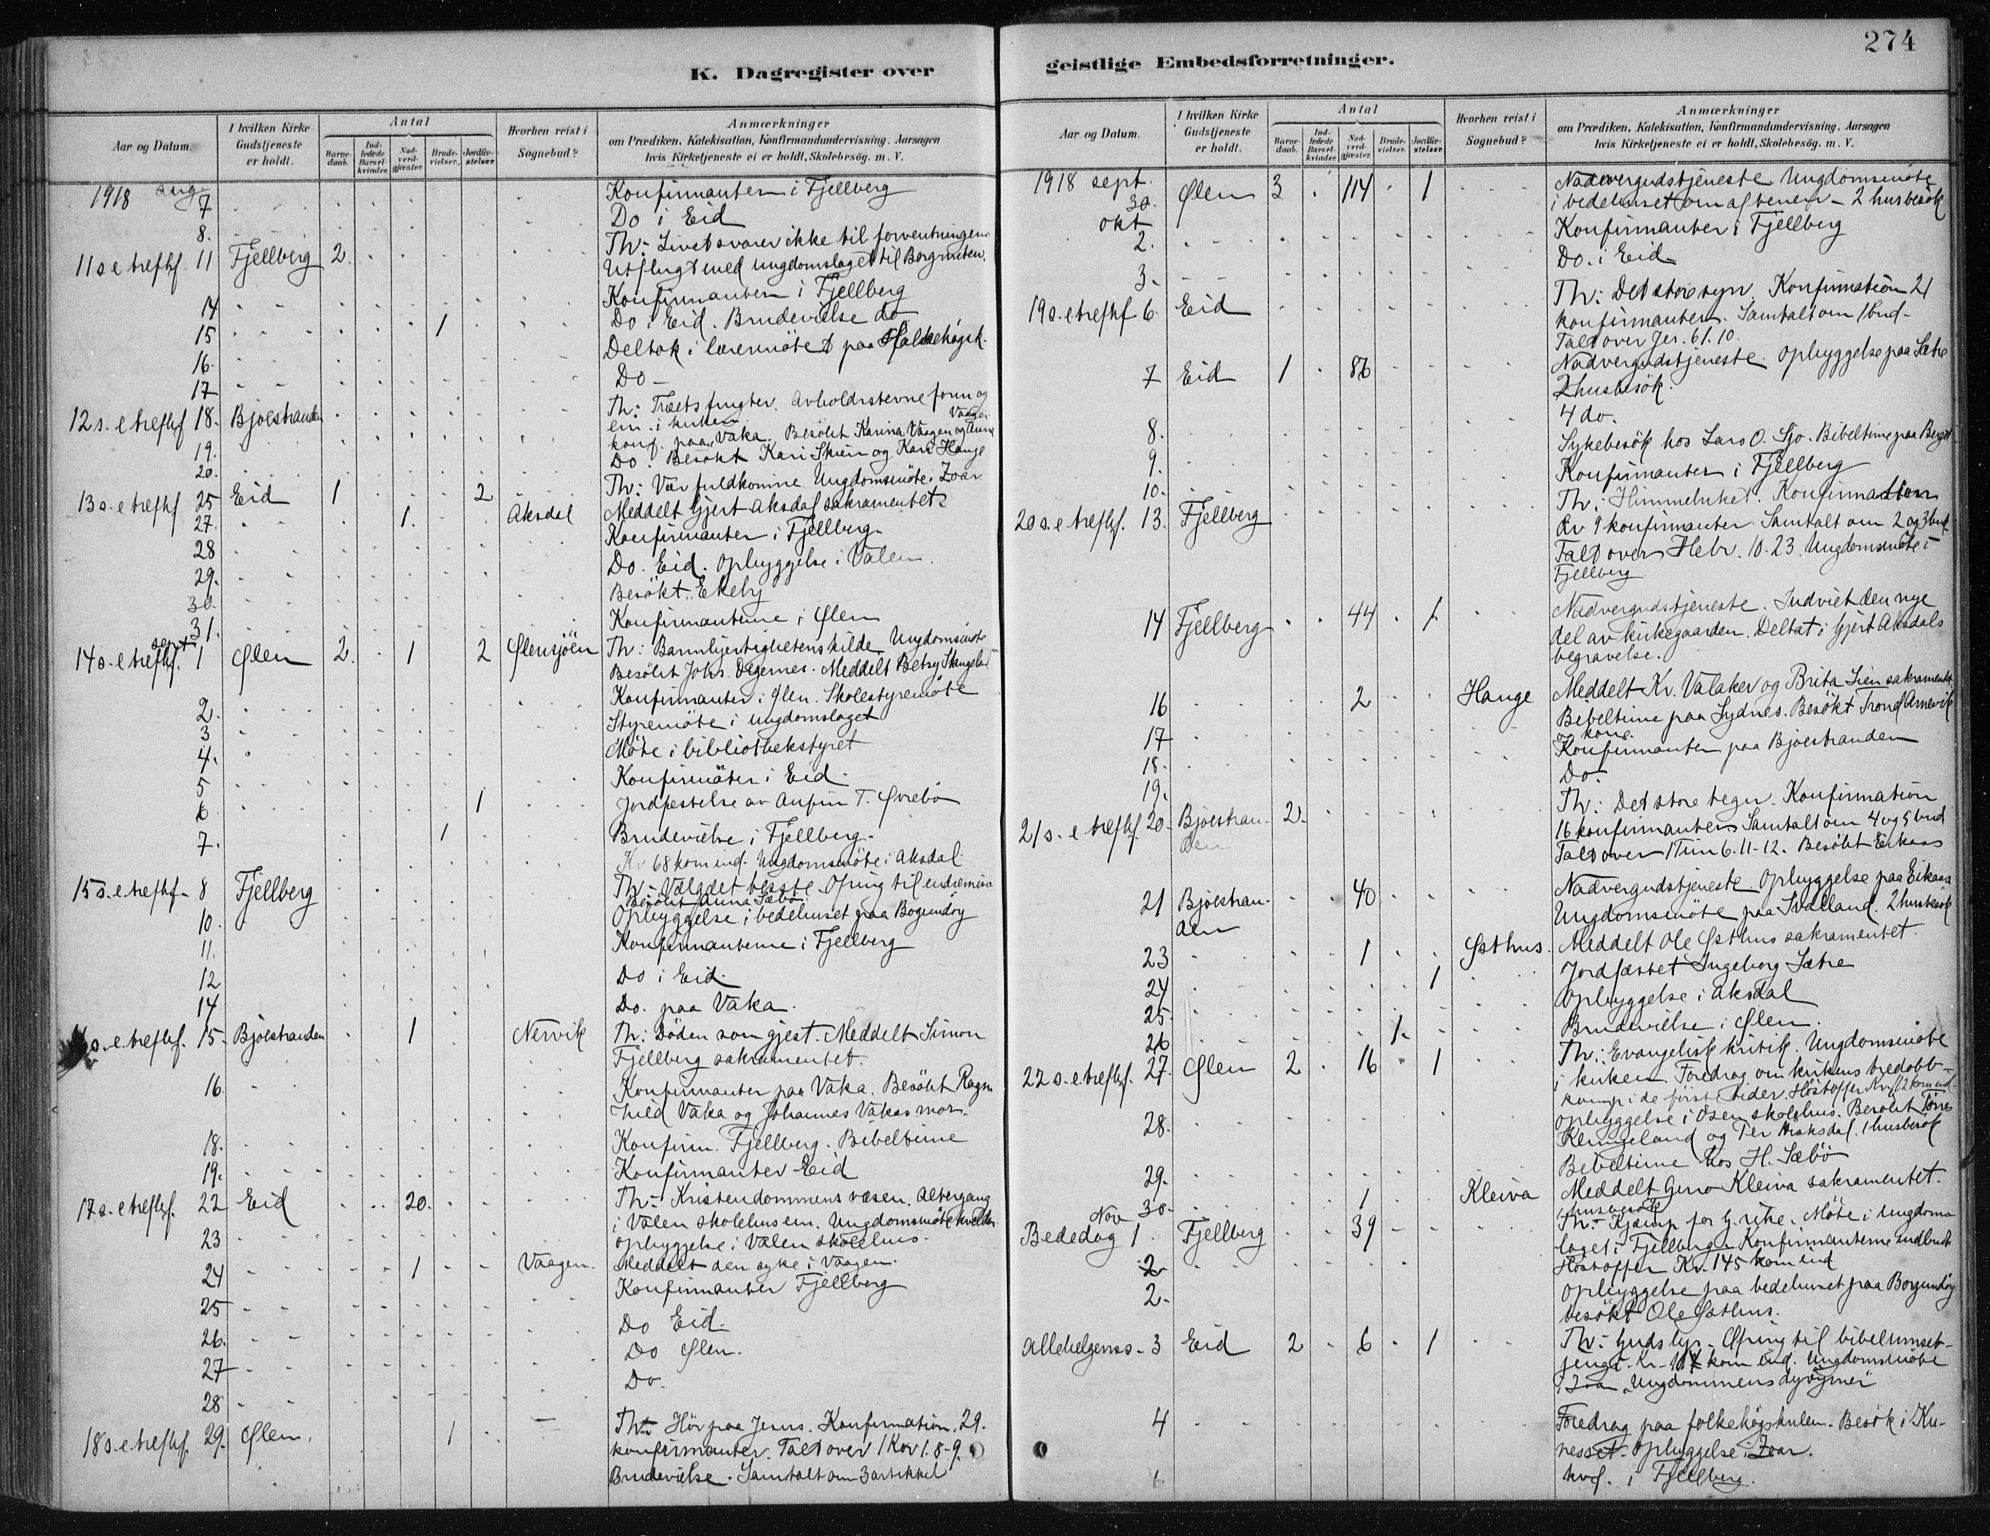 274
K. Dagregister over
geistlige Embedsforretninger.
Aar og Datum.
I hvilken Kirke Gudstjeneste er holdt.
Antal
Barnedaab.
Indledede Barselkvinder.
Nadverdgjæster.
Brudevielser.
Jordfæstelser.
Hvorhen reist i Sognebud?
Anmærkninger
om Prædiken, Katekisation, Konfirmandundervisning, Aarsagen
hvis Kirketjeneste ei er holdt, Skolebesøg. m. V.
1918 aug. 7 Konfirmanter i Fjellberg
8. Do i Eid
11 s e trefhf. 11 Fjellberg 2 Th: Livet svarer ikke til forventningene
Utflugt med ungdomslaget til Borgunden.
14 Konfirmanter i Fjellberg
15 1 Do i Eid. Brudevielse do
16. Deltok i læremöte paa
17 Do
12 s. e trefhf 18. Bjoestranden Th: Træets frugter. Avholdsstevne form og
em. i kirken
19. konf. paa Vaka. Besökt Karina Vaagen og Anna Vaage
20. Do. Besökt Kari Skien og Kari Hauge
13 s. e trefhf. 25 Eid 1 2 Th: Vær fuldkomne. Ungdomsmöte i Zoar
27. 1. Aksdal Meddelt Gjert Aksdal sakramentet
28 Konfirmanter i Fjellberg
29. Do. Eid. Opbyggelse i Valen.
30. Besökt Ekeby
31. Konfirmanterne i Ølen
14 s. e trefhf. sept 1 Ølen 2 1 2 Ølensjöen Th: Barmhjertighetens kilde. Ungdomsmöte
Besökt Johs. Degernes. Meddelt Betsy Stangeland
2. Konfirmanter i Ølen. Skolestyremöte
3 Styremöte i ungdomslaget
4. Möte i bibliothekstyret
5 Konfirmater i Eid.
6 1 Jordfestelse av Anfin T. Øvrebö
7. 1 Brudevielse i Fjellberg.
Kr 68 kom ind. Ungdomsmöte i Aksdal
15 s. e trefhf. 8 Fjellberg Th: Vælg det bedste. Ofring til indremiss.
Besökt Anna Sæbö.
10. Opbyggelse i bedehuset paa Borgundöy
11. Konfirmanterne i Fjellberg
12 Do i Eid.
14 Do. paa Vaka.
s. e. trefhf. 15 Bjoestranden 1 Nervik Th: Döden som gjest. Meddelt Simon
Fjellberg sakramentet.
16. Konfirmanter paa Vaka. Besökt Ragn
hild Vaka og Johannes Vakas mor.
18. Konfirm. Fjellberg. Bibeltime
19. Konfirmanter Eid
17 s. e trefhf. 22 Eid 20. Th: Kristendommens væsen. Altergang
i Valen skolehus em. Ungdomsmöte kvelden
23 opbyggelse i Valen skolehus.
24 1 Vaagen. Meddelt den syke i Vaagen.
25 Konfirmanter Fjellberg
26. Do Eid.
27 Do Ølen.
28 Do.
18 s. e trefhf. 29. Ølen. 1 Th: Hör paa Jesus. Konfirmation, 29.
konfirmanter. Talt over 1 Kor 1. 8-9.
Brudevielse. Samtalt om 3 artikkel
Aar og Datum.
I hvilken Kirke Gudstjeneste er holdt.
Antal
Barnedaab.
Indledede Barselkvinder.
Nadverdgjæster.
Brudevielser.
Jordfæstelser.
Hvorhen reist i Sognebud?
Anmærkninger
om Prædiken, Katekisation, Konfirmandundervisning, Aarsagen
hvis Kirketjeneste ei er holdt, Skolebesøg. m. V.
1918 sept. 30. Ølen 3 114 1 Nadvergudstjeneste Ungdomsmöte
i bedehuset om aftenen - 2 husbesök
okt 2. Konfirmanter i Fjellberg
3. Do. i Eid
19 s. e trefhf 6. Eid Th: Det store syn. Konfirmation 21
konfirmanter. Samtalt om 1 bud -
Talt over Jes. 61. 10.
7 Eid 1 86 Nadvergudstjeneste. Opbyggelse paa Sætre
2 husbesök
8. 4 do.
9. Sykebesök hos Lars O. Sjo. Bibeltime paa Berget
10. Konfirmanter i Fjellberg
20 s. e trefhf. 13. Fjellberg Th: Himmelriket. Konfirmation
9 konfirmanter. Samtalt om 2 og 3 bud
Talt over Hebr. 10. 23. Ungdomsmöte i
Fjellberg
14 Fjellberg 44 1 Nadvergudstjeneste. Indviet den nye
del av kirkegaarden. Deltat i Gjert Aksdals
begravelse.
16 2 Hauge Meddelt Kr. Valaker og Brita Lien sakramentet.
17 Bibeltime paa Sydnes. Besökt Trond Arnevik
og kone.
18. Konfirmanter paa Bjoestranden
19. Do
21 s. e trefhf. 20. Bjoestranden 2. Th: Det store tegn. Konfirmation
16 konfirmanter Samtalt om 4 og 5 bud
Talt over 1 Tim 6. 11-12. Besökt Eikaas
21 Bjoestranden 40 Nadvergudstjeneste. Opbyggelse paa Eikaas
Ungdomsmöte paa Svalland. 2 husbesök
23 1 Østhus. Meddelt Ole Østhus sakramentet.
24 1 Jordfæstet Ingeborg Sætre
25. Opbyggelse i Aksdal
26 1. Brudevielse i Ølen.
22 s. e trefhf. 27. Ølen 2 16 1 Th: Evangelisk kritik. Ungdomsmöte
i kirken. Foredrag om kirkens
kamp i de förste tider. Höstoffer Kr. 12 kom ind.
28. opbyggelse i Ølen skolehus. Besökt Törres
Kenngeland og Per Höksdal. 1 husbesök
29. Bibeltime hos H. Sæbö
30. 1 Kleiva Meddelt Kleiva sakramentet.
husbesök
Bededag Nov 1. Fjellberg 39 Th: Kjæmp for G. rike. Möte i ungdoms
laget i Fjellberg. Konfirmanterne indbudt
2 Höstoffer Kr. 145 kom ind
2. opbyggelse paa bedehuset paa Borgundöy
besökt Ole Østhus.
Allehelgenss. 3 Eid 2 6 1 Th: Guds lys. Ofring til bibelunset
jengt. Kr. 107 kom ind. Ungdomsmöte
i Zoar "Ungdommens
4 Foredrag paa folkehögskulen. Besök i Ku
nesset. Opbyggelse i Zoar.
konf. i Fjellberg.